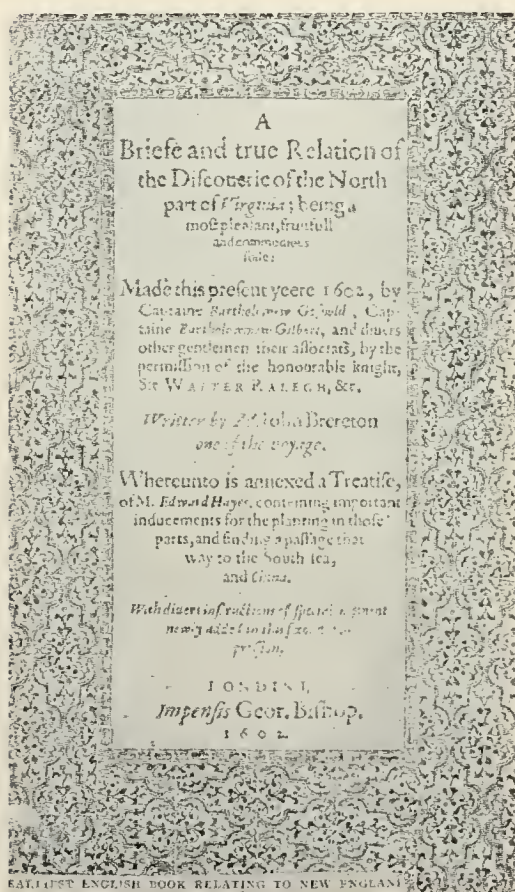 A
Briefe and true Relation of
the Discouerie of the North
part of Virginia; being a
most pleasant, fruitfull
and commodious
soile:
Made this present yeere 1602, by
Captaine Bartholomew Gosnold, Cap-
taine Bartholomew Gilbert, and diuers
other gentlemen their associats, by the
permission of the honourable knight,
Sir WALTER RALEGH, &c.
Written by M. Iohn Brereton
one of the voyage.
Whereunto is annexed a Treatise,
of M. Edward Hayes, conteining important
inducements for the planting in those
parts, and finding a passage that
way to the South sea,
and China.
With diuers instructions of speciall moment
newly added in this second
impression.
LONDINI,
Impensis Geor. Bishop.
1602
EARLIEST ENGLISH BOOK RELATING TO NEW ENGLAND